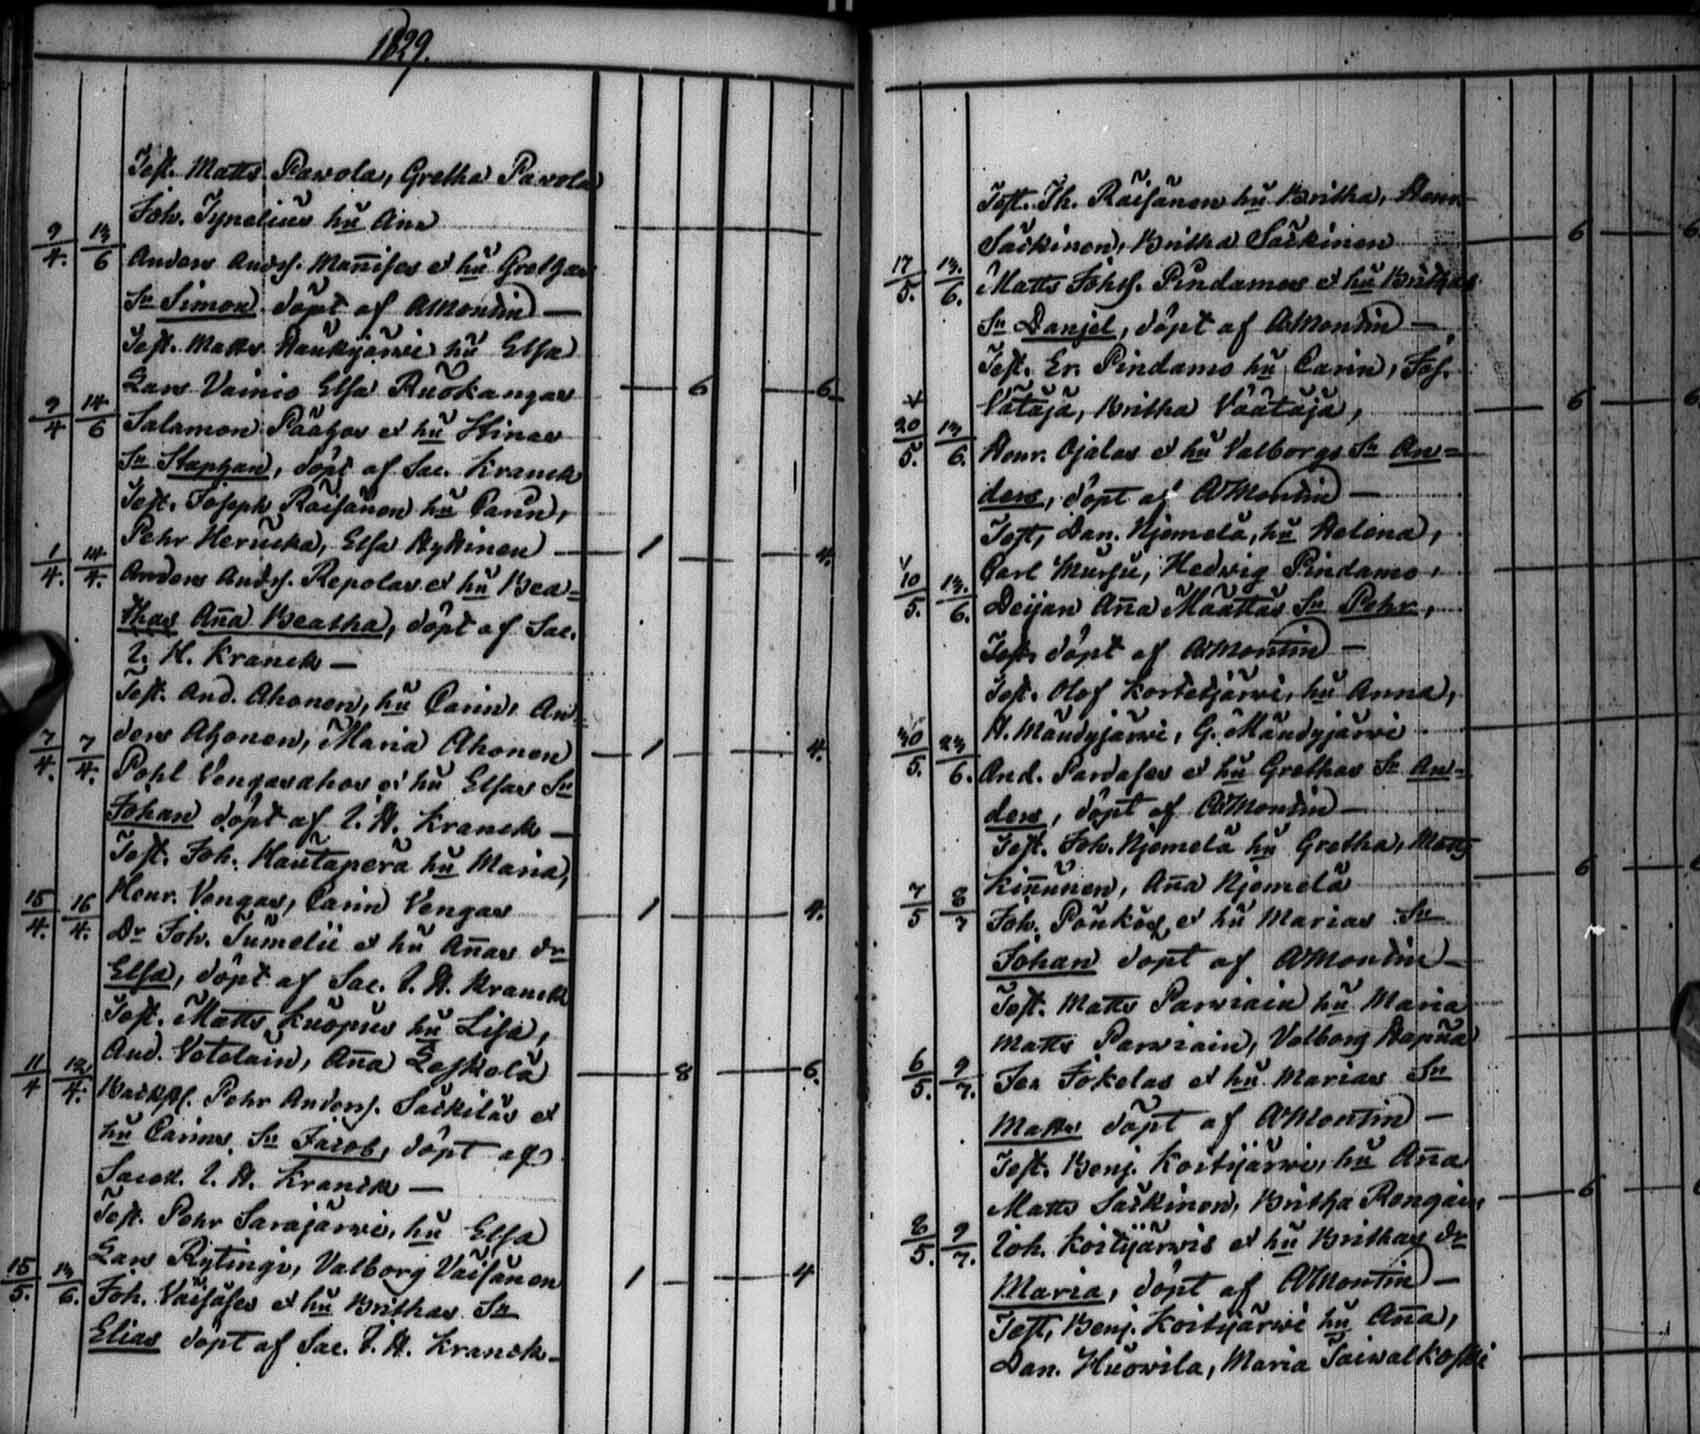 1829.
Test. Matts Pavola, Gretha Pavola
Joh. Tynelius hu Ana
9/4. 13/6 Anders Andss. Mañises et hu Grethas
Sn Simon. döpt af AMontin —
Test. Matts Haukijärvi hu Elsa
Lars Vainio Elsa Ruokangas — 6 — 6
9/4 14/6 Salamon Päähos et hu Hinas
Sn Staphan, döpt af Sac. Kranck
Test. Joseph Räisänen hu Carin,
Pehr Heruska, Elsa Hyttinen — 1 — 4.
1/4. 14/4. Anders Andss. Repolas et hu Bea=
thas Aña Beatha, döpt af Sac.
I. H. Kranck —
Test. And. Ahonen, hu Carin, An=
ders Ahonen, Maria Ahonen — 1 — 4.
7/4. 7/4. Pohl Vengasahos et hu Elsas Sn
Johan döpt af I. H. Kranck —
Test. Joh. Hautaperä hu Maria,
Henr. Vengas, Carin Vengas — 1 — 4.
15/4. 16/4. Dr Joh. Tumelii et hu Añas dr
Elsa, döpt af Sac. I. H. Kranck
Test. Matts Kuopus hu Lisa,
And. Votelain, Aña Leskelä — 8 — 6.
11/4 12/4. Pehr Anderss. Särkiläs et
hu Carins Sn Jacob, döpt af
Sacell. I. H. Kranck —
Test. Pehr Sarajärvi, hu Elsa
Lars Rytingi, Valborg Väisänen — 1 — 4
15/5. 13/6. Joh. Väisäses et hu Brithas Sn
Elias döpt af Sac. I. H. Kranck.
Test. Th. Räisänen hu Britha, Henr
Särkinen, Britha Särkinen — 6 — 6
17/5. 13./6. Matts Johss. Pindamos et hu Brithas
Sn Danjel, döpt af AMontin —
Test. Er. Pindamo hu Carin, Jos.
Vätäjä, Britha Väätäjä, — 6 — 6
20/5. 13/6. Henr. Ojalas et hu Valborgs Sn An=
ders, döpt af AMontin —
Test, Dan. Njemelä, hu Helena,
Carl Mursu, Hedvig Pindamo,
10/5. 13./6. Deijan Aña Määttäs Sn Pehr,
Test. döpt af AMontin —
Test. Olof Kortetjärvi, hu Anna,
H. Mäudyjärvi, G. Mäudyjärvi
30/5. 23/6. And. Parvases et hu Grethas Sn An=
ders, döpt af AMontin —
Test. Joh. Njemelä hu Gretha, Matts
Kiñunen, Aña Njemelä — 6 — 6
7/5 8/7 Joh. Poukos, et hu Marias Sn
Johan döpt af AMontin —
Test. Matts Parviain hu Maria
Matts Parviain, Valborg Hapua
6/5. 9/7. Jokelas et hu Marias Sn
Matts döpt af AMontin —
Test. Benj. Koitijärvi, hu Aña
Matts Särkinen, Britha Rongain, — 6
8/5. 9/7. Joh. Koitijärvis et hu Brithas dr
Maria, döpt af AMontin —
Test, Benj. Koitijärvi hu Aña,
Dan. Huovila, Maria Taivalkoski